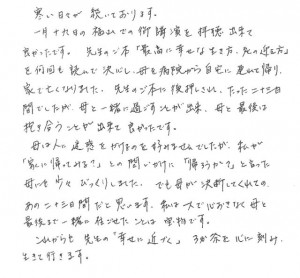 寒い日々が続いております。
一月十九日の極みでの街 講演を拝聴出来て
良かったです。先生のご本「最高に幸せな生き方、死の迎え方」
を何回も読んで決心し、母を病院から自宅に連れて帰り、
家で亡くなりました。先生のご本に後押しされ、たった二十三日
間でしたが、母と一緒に過ごすことが出来、母と最後は
抱き合うことが出来て良かったです。
母は人に迷惑をかけるのを好みませんでしたが、私が
「家に帰ってみる?」との問いかけに「帰ろうか?」と言った
母に少々びっくりしました。でも母が決断してくれての、
あの二十三日間だと思います。私は一人で心おきなく母と
最後まで一緒に居たことは宝物です。
これからも先生の「幸せに近づく」 3か条を心に刻み、
生きて行きます。